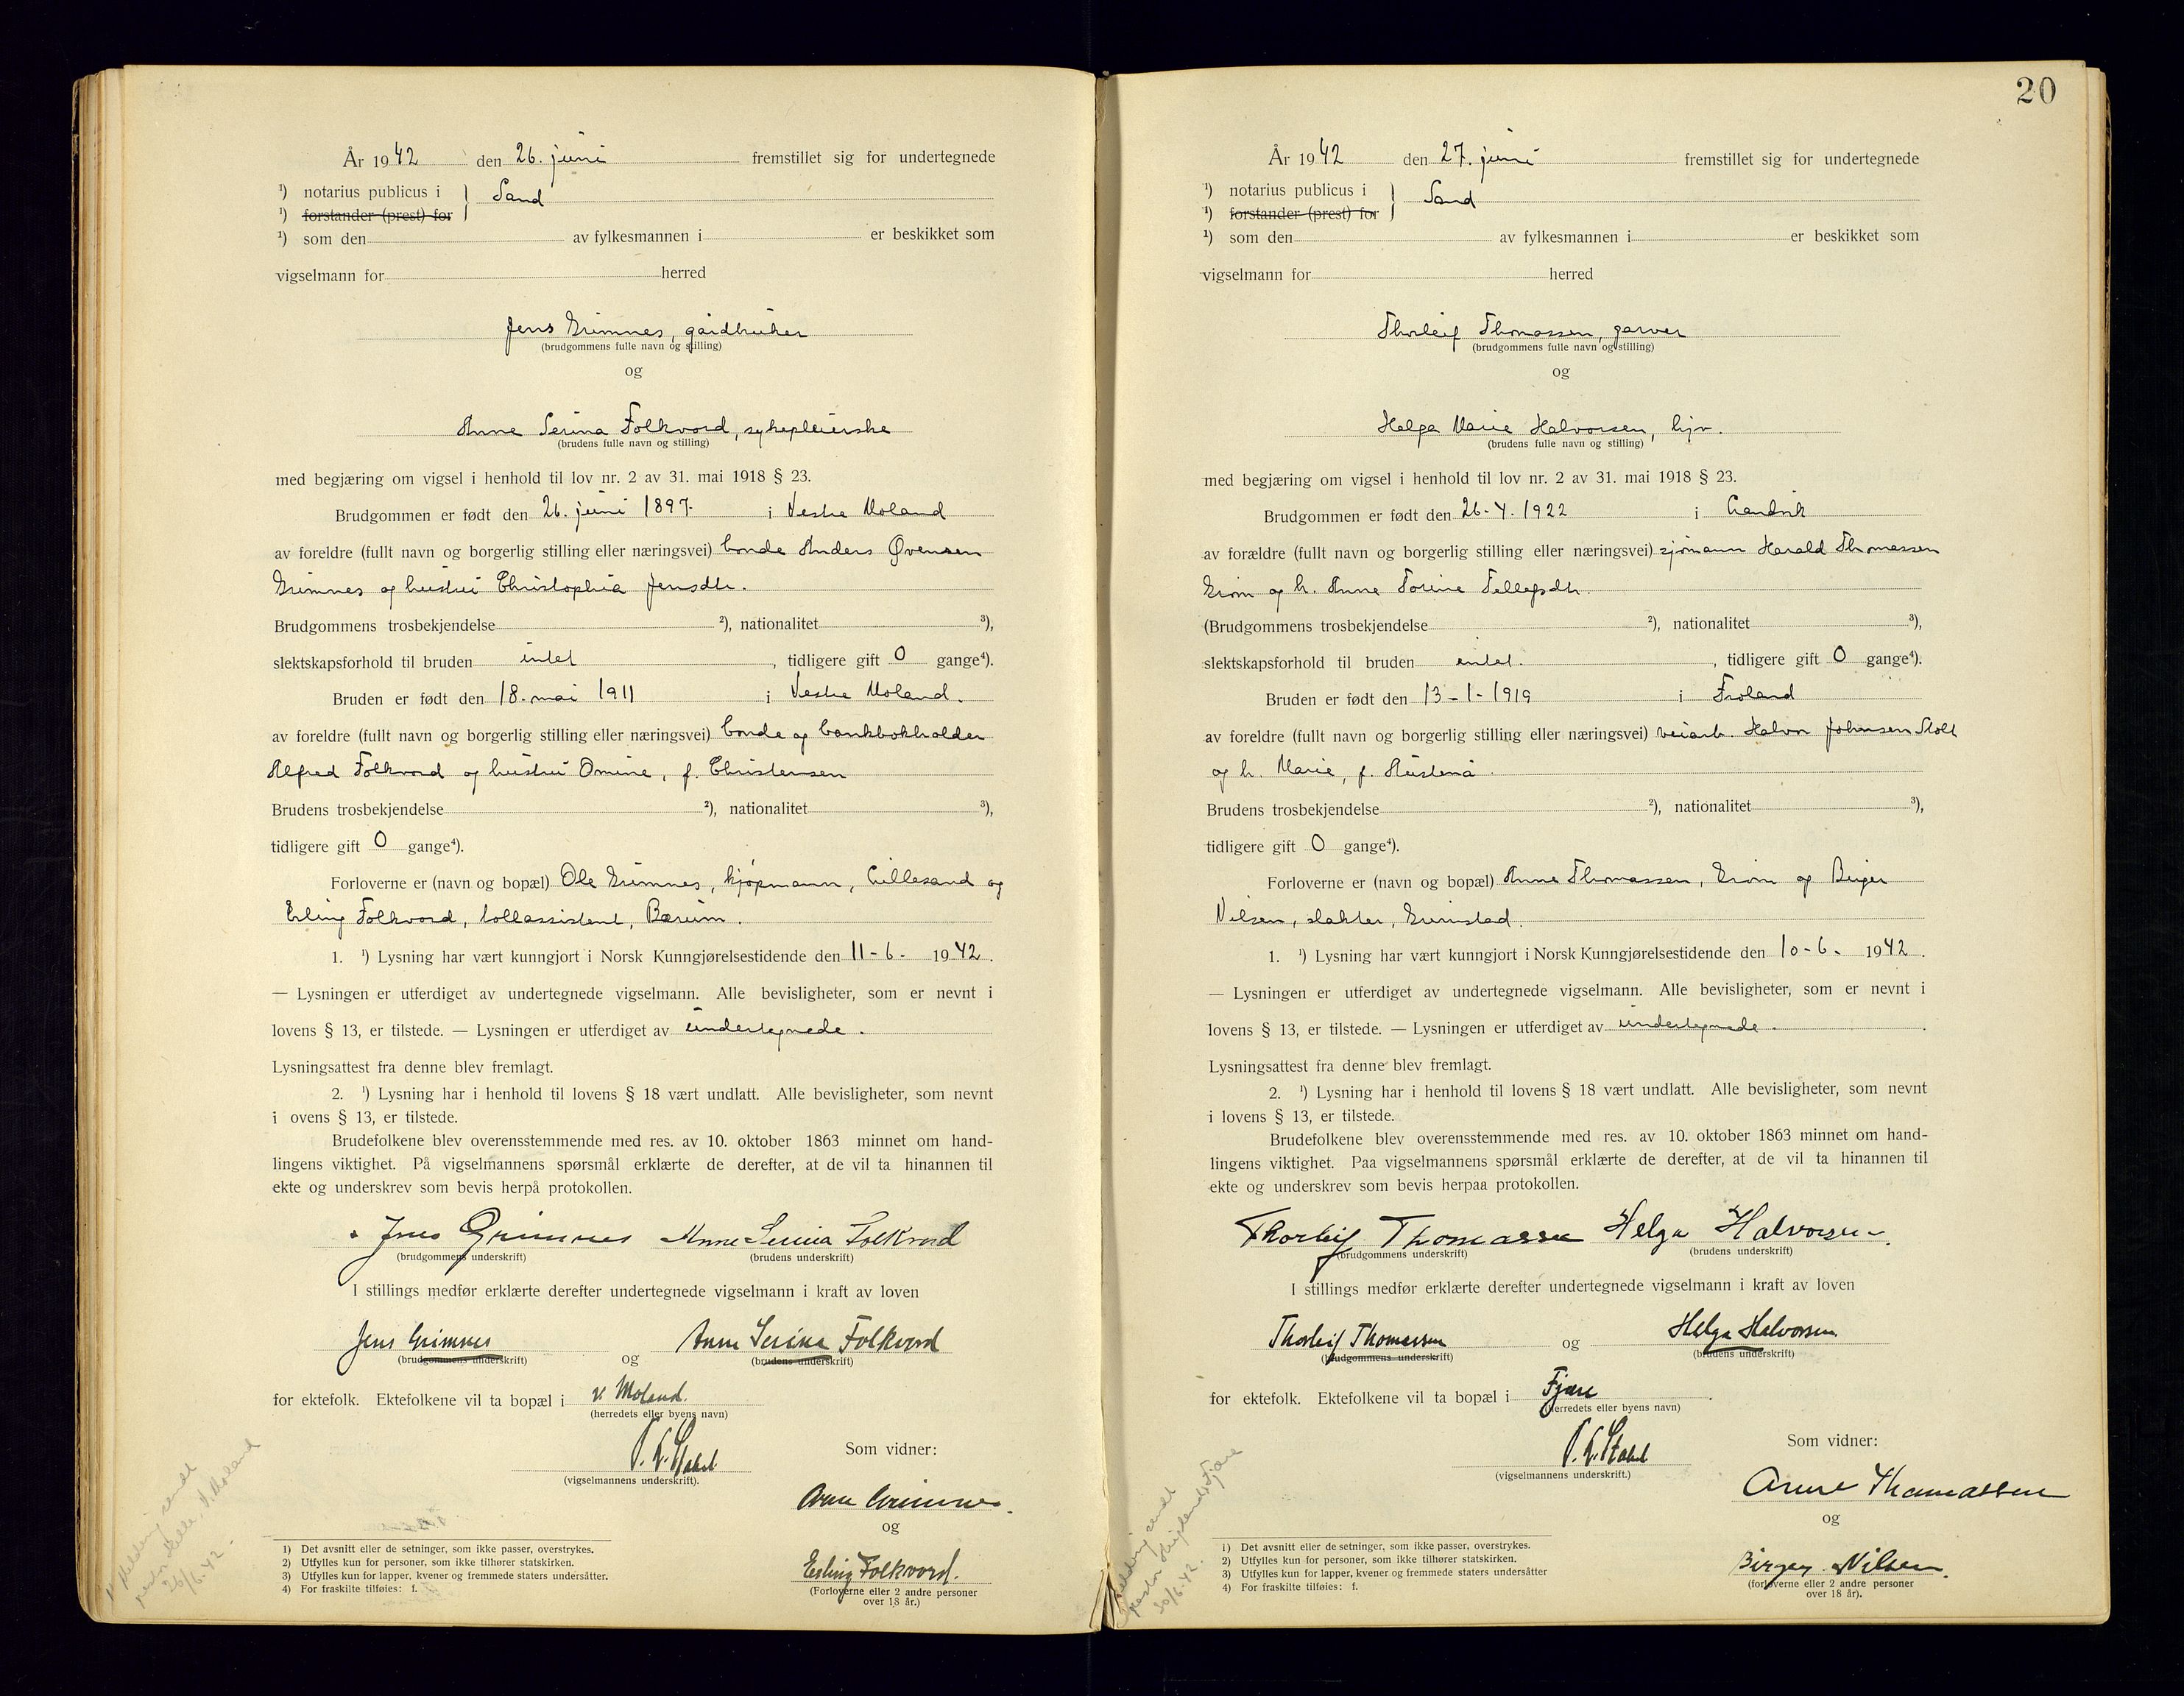 År 1942 den 26. juni fremstillet sig for undertegnede
¹) notarius publicus i } Sand
¹) forstander (prest) for
¹) som den av fylkesmannen i er beskikket som
vigselmann for herred
Jens Grimnes, gårdbruker
(brudgommens fulle navn og stilling)
og
Anne Serina Folkvord, sykepleierske
(brudens fulle navn og stilling)
med begjæring om vigsel i henhold til lov nr. 2 av 31. mai 1918 § 23.
Brudgommen er født den 26. juni 1897. i Vestre Moland
av foreldre (fullt navn og borgerlig stilling eller næringsvei) bonde Anders Øvensen
Grimnes og hustru Christophia Jensdtr.
Brudgommens trosbekjendelse ²), nationalitet ³),
slektskapsforhold til bruden intet , tidligere gift 0 gange⁴).
Bruden er født den 18. mai 1911 i Vestre Moland.
av foreldre (fullt navn og borgerlig stilling eller næringsvei) bonde og bankbokholder
Alfred Folkvord og hustru Omine, f. Christensen
Brudens trosbekjendelse ²), nationalitet ³),
tidligere gift 0 gange⁴).
Forloverne er (navn og bopæl) Ole Grimnes, kjøpmann, Lillesand og
Erling Folkvord, tollassistent, Bærum.
1. ¹) Lysning har vært kunngjort i Norsk Kunngjørelsestidende den 11-6- 1942.
— Lysningen er utferdiget av undertegnede vigselmann. Alle bevisligheter, som er nevnt i
lovens § 13, er tilstede. — Lysningen er utferdiget av undertegnede.
Lysningsattest fra denne blev fremlagt.
2. ¹) Lysning har i henhold til lovens § 18 vært undlatt. Alle bevisligheter, som nevnt
i ovens § 13, er tilstede.
Brudefolkene blev overensstemmende med res. av 10. oktober 1863 minnet om hand-
lingens viktighet. På vigselmannens spørsmål erklærte de derefter, at de vil ta hinannen til
ekte og underskrev som bevis herpå protokollen.
Jens Grimnes Anne Serina Folkvord
(brudgommens underskrift) (brudens underskrift)
I stillings medfør erklærte derefter undertegnede vigselmann i kraft av loven
Jens Grimnes og Anne Serina Folkvord
(brudgommens underskrift) (brudens underskrift)
for ektefolk. Ektefolkene vil ta bopæl i v. Moland.
(herredets eller byens navn)
Stabel
(vigselmannens underskrift).
Som vidner:
Grimnes.
og
Erling Folkvord.
(Forloverne eller 2 andre personer
over 18 år.)
1) Det avsnitt eller de setninger, som ikke passer, overstrykes.
2) Utfylles kun for personer, som ikke tilhører statskirken.
3) Utfylles kun for lapper, kvener og fremmede staters undersåtter.
4) For fraskilte tilføies: f.
Melding sendt
V. Moland
26/6.42.
20
År 1942 den 27. juni fremstillet sig for undertegnede
¹) notarius publicus i } Sand
¹) forstander (prest) for
¹) som den av fylkesmannen i er beskikket som
vigselmann for herred
Thorleif Thomassen, garver
(brudgommens fulle navn og stilling)
og
Helga Marie Halvorsen, hjv.
(brudens fulle navn og stilling)
med begjæring om vigsel i henhold til lov nr. 2 av 31. mai 1918 § 23.
Brudgommen er født den 26-4.1922 i Landvik
av forældre (fullt navn og borgerlig stilling eller næringsvei) sjømann Harald Thomassen
Grom og h. Anne Torine Tellefsdtr.
(Brudgommens trosbekjendelse ²), nationalitet ³),
slektskapsforhold til bruden intet. , tidligere gift 0 gange⁴).
Bruden er født den 13-1-1919 i Froland
av foreldre (fullt navn og borgerlig stilling eller næringsvei) veiarb. Halvor Johnsen
og h. Marie, f.
Brudens trosbekjendelse ²), nationalitet ³),
tidligere gift 0 gange⁴).
Forloverne er (navn og bopæl) Anne Thomassen, Grom og Birger
Nilsen, slakter, Grimstad.
1. ¹) Lysning har vært kunngjort i Norsk Kunngjørelsestidende den 10-6- 1942.
— Lysningen er utferdiget av undertegnede vigselmann. Alle bevisligheter, som er nevnt i
lovens § 13, er tilstede. — Lysningen er utferdiget av undertegnede.
Lysningsattest fra denne blev fremlagt.
2. ¹) Lysning har i henhold til lovens § 18 vært undlatt. Alle bevisligheter, som nevnt
i lovens § 13, er tilstede.
Brudefolkene blev overensstemmende med res. av 10. oktober 1863 minnet om hand-
lingens viktighet. Paa vigselmannens spørsmål erklærte de derefter, at de vil ta hinannen til
ekte og underskrev som bevis herpaa protokollen.
Thorleif Thomassen Helga Halvorsen.
(brudgommens underskrift) (brudens underskrift)
I stillings medfør erklærte derefter undertegnede vigselmann i kraft av loven
Thorleif Thomassen og Helga Halvorsen
(brudgommens underskrift) (brudens underskrift)
for ektefolk. Ektefolkene vil ta bopæl i Fjære
(herredets eller byens navn)
Stabel
(vigselmannens underskrift.)
Som vidner:
Anne Thomassen
og
Birger Nilsen.
(forloverne eller 2 andre personer
over 18 år).
1) Det avsnitt eller de setninger, som ikke passer, overstrykes.
2) Utfylles kun for personer, som ikke tilhører statskirken.
3) Utfylles kun for lapper, kvener og fremmede staters undersåtter
4) For fraskilte tilføies: f.
Melding sendt
Fjære
30/6.42.